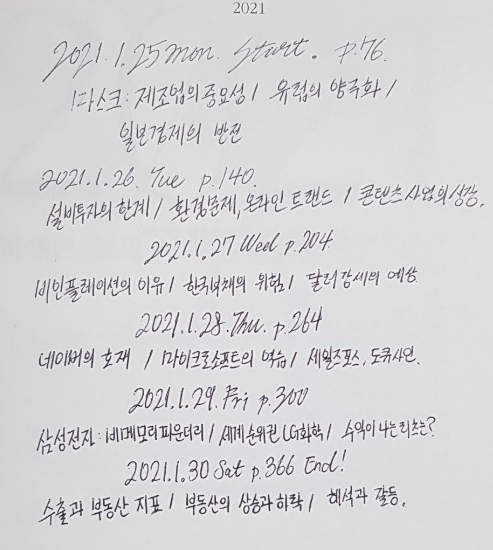 2021
2021.1.25 mon. Start. p.76.
마스크: 제조업의 중요성 / 유럽의 양극화 /
일본경제의 반전
2021.1.26. Tue p.140.
설비투자의 한계 / 환경문제, 온라인 트랜드 / 콘텐츠 사업의 성장.
2021.1.27 Wed p.204
비인플레이션의 이유 / 한국부채의 위험 / 달러강세의 예상
2021.1.28. Thu. p.264
네이버의 호재 / 마이크로소프트의 역습 / 세일즈포스, 도큐사인.
2021.1.29. Fri p.300
삼성전자: 비메모리 파운더리 / 세계순위권 LG화학 / 수익이 나는 리츠는?
2021.1.30 Sat p.366 End!
수출과 부동산 지표 / 부동산의 상승과 하락 / 해석과 갈등.